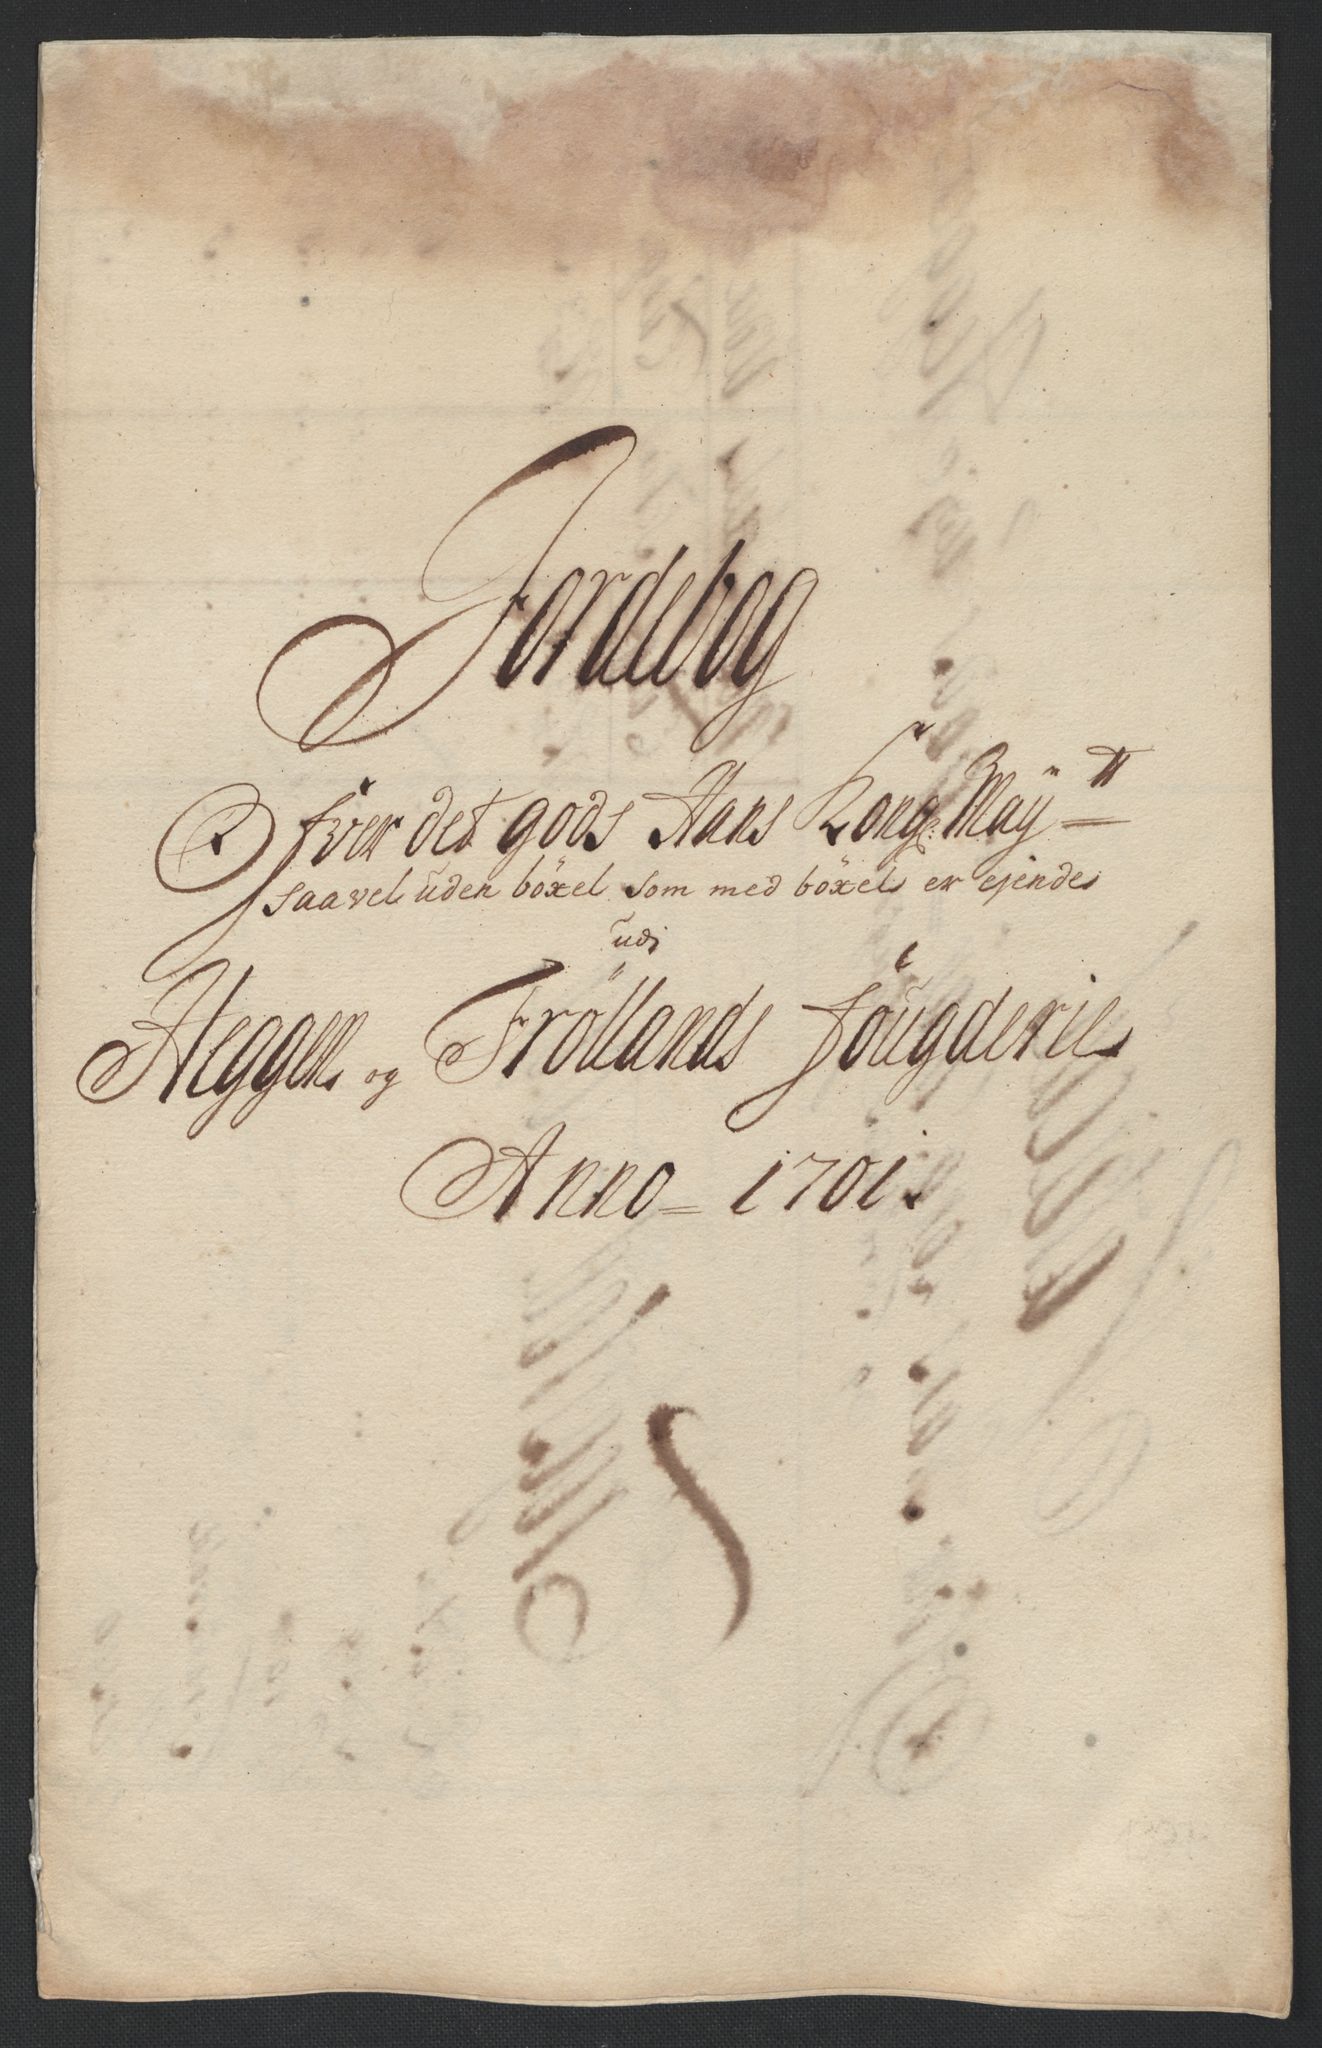 Jordebog
Ofver det gods Hans Kong: May:tt
saavel uden böxel som med böxel er ejendes
udi
Heggen og Fröllands fougderie
Anno = 1701.